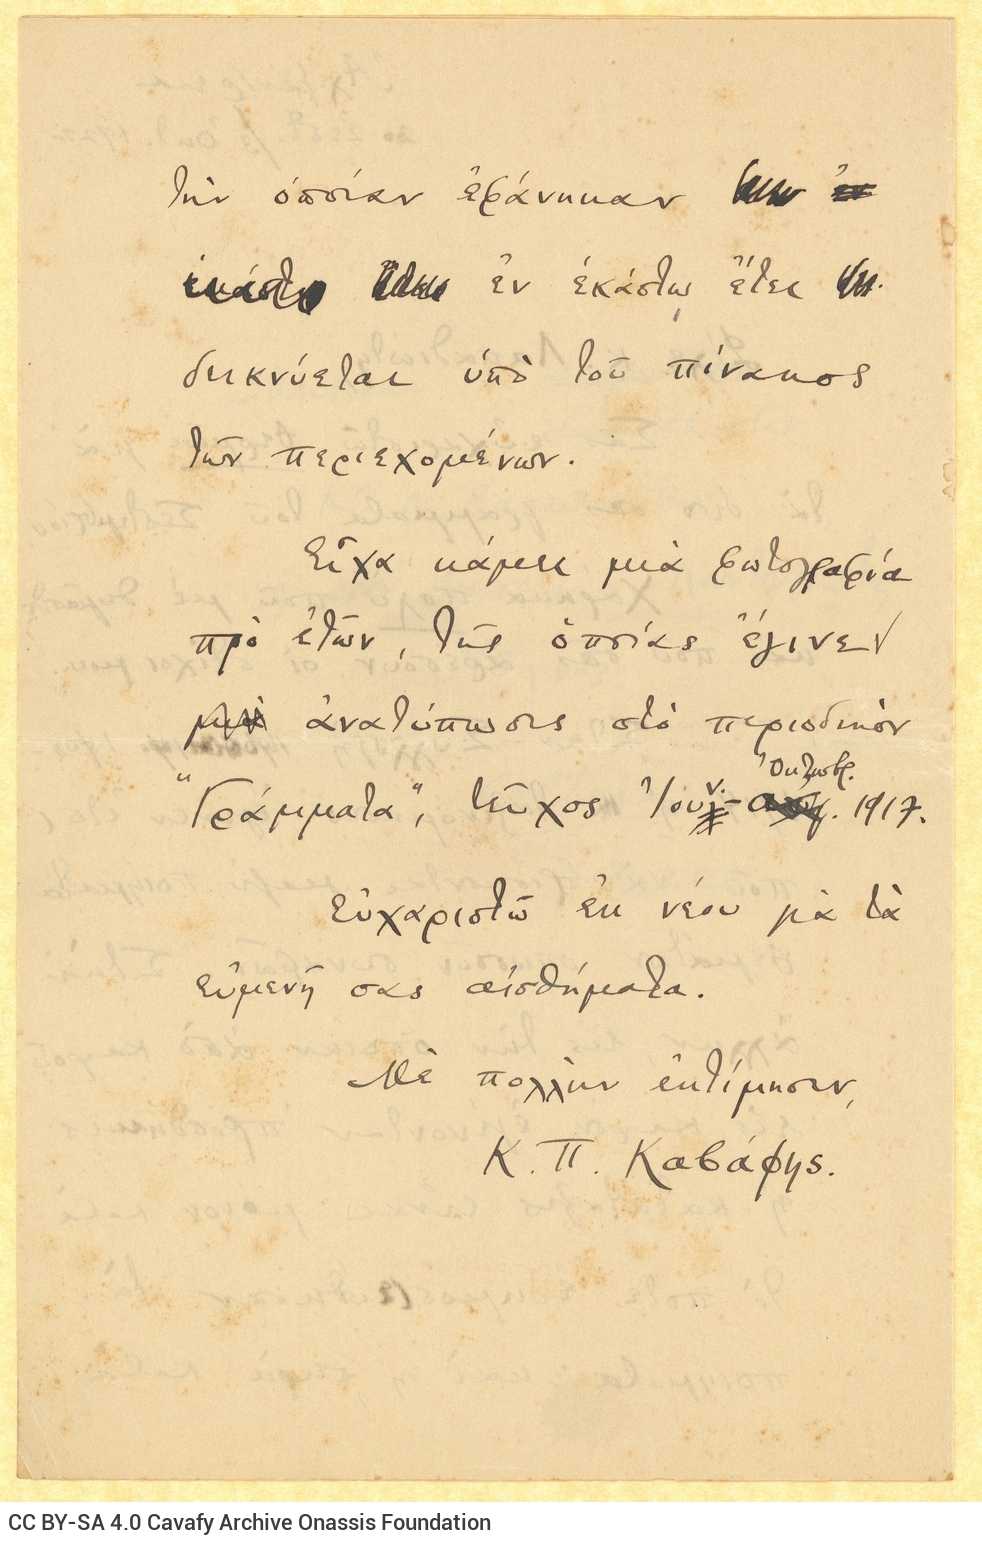 τὴν ὁποίαν ἐφάνηκαν
ἐν ἑκάστῳ ἔτει
δεικνύεται ὑπὸ τοῦ πίνακος
τῶν περιεχομένων.
Εἶχα κάμει μιὰ φωτογραφία
πρὸ ἐτῶν, τῆς ὁποίας ἔγινεν
ἀνατύπωσις στὸ περιοδικὸν
Ὀκτωβρ.
"Γράμματα", τεῦχος Ἰουν.- 1917.
Εὐχαριστῶ ἐκ νέου γιὰ τὰ
εὐμενῆ σας αἰσθήματα.
Μὲ πολλὴν ἐκτίμησιν,
Κ. Π. Καβάφης.
CC BY-SA 4.0 Cavafy Archive Onassis Foundation